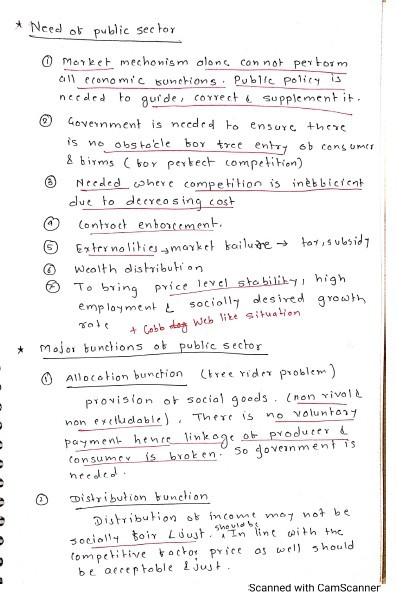 * Need of public sector
① Market mechanism alone can not perform
all economic functions. Public policy is
needed to guide, correct & supplement it.
② Government is needed to ensure there
is no obstacle for free entry of consumer
& firms (for perfect competition)
③ Needed where competition is inefficient
due to decreasing cost
④ Contract enforcement.
⑤ Externalities → market failure → tax, subsidy
⑥ Wealth distribution
⑦ To bring price level stability, high
employment & socially desired growth
rate + Cobb Web like situation
* Major functions of public sector
① Allocation function (free rider problem)
provision of social goods. (non rival &
non excludable). There is no voluntary
payment hence linkage of producer &
consumer is broken. So government is
needed.
② Distribution function
Distribution of income may not be
socially fair & just. should be In line with the
competitive factor price as well should
be acceptable & just.
Scanned with CamScanner